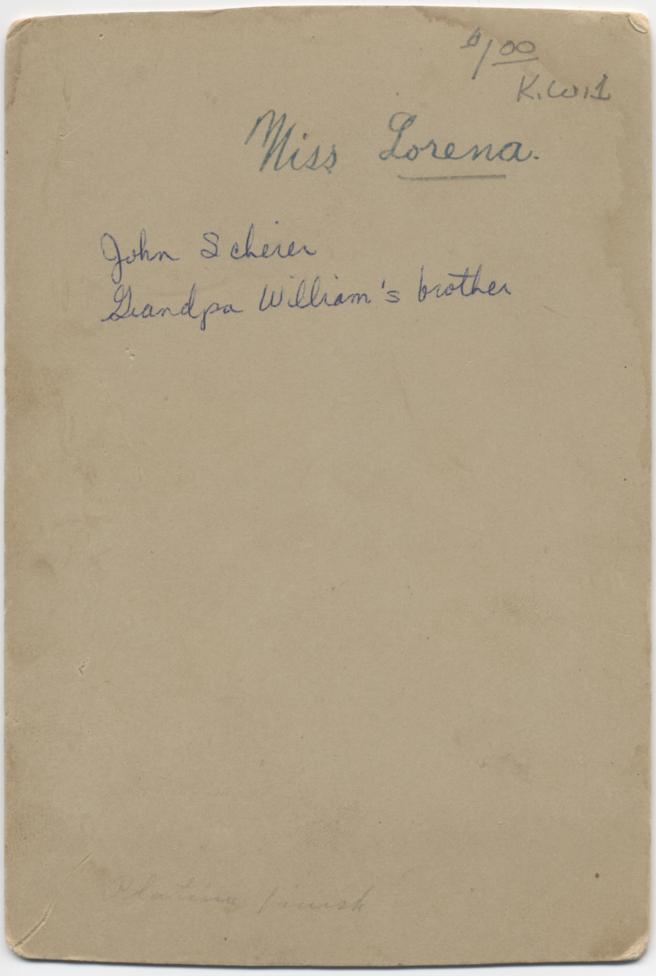 $1.00
K.W.1
Miss Lorena.
John Scherer
Grandpa William's brother
Platino finish